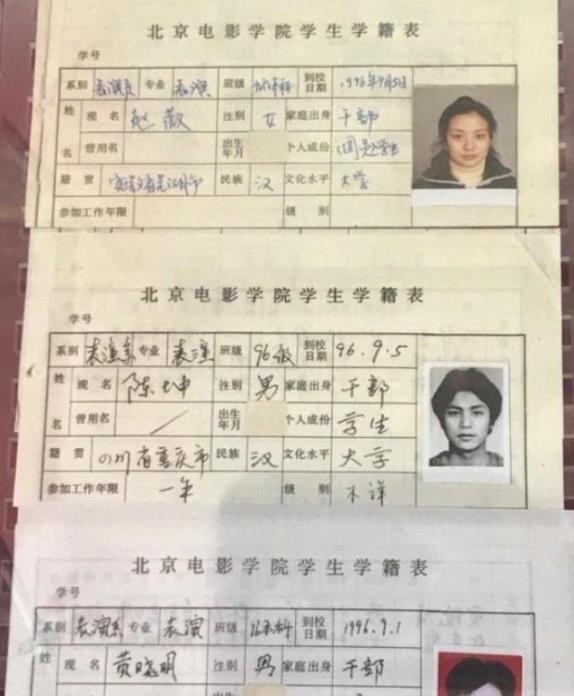 北京电影学院学生学籍表
学号
系别 表演系 专业 表演 班级 96本科 到校日期 1996年9月5日
姓名 现名 赵薇 性别 女 家庭出身 干部
曾用名 出生年月 个人成份 学生
籍贯 安徽省芜湖市 民族 汉 文化水平 大学
参加工作年限 级别
北京电影学院学生学籍表
学号
系别 表演系 专业 表演 班级 96级 到校日期 96.9.5
姓名 现名 陈坤 性别 男 家庭出身 干部
曾用名 / 出生年月 个人成份 学生
籍贯 四川省重庆市 民族 汉 文化水平 大学
参加工作年限 一年 级别 不详
北京电影学院学生学籍表
学号
系别 表演系 专业 表演 班级 96本科 到校日期 1996.9.1
姓 现名 黄晓明 性别 男 家庭出身 干部